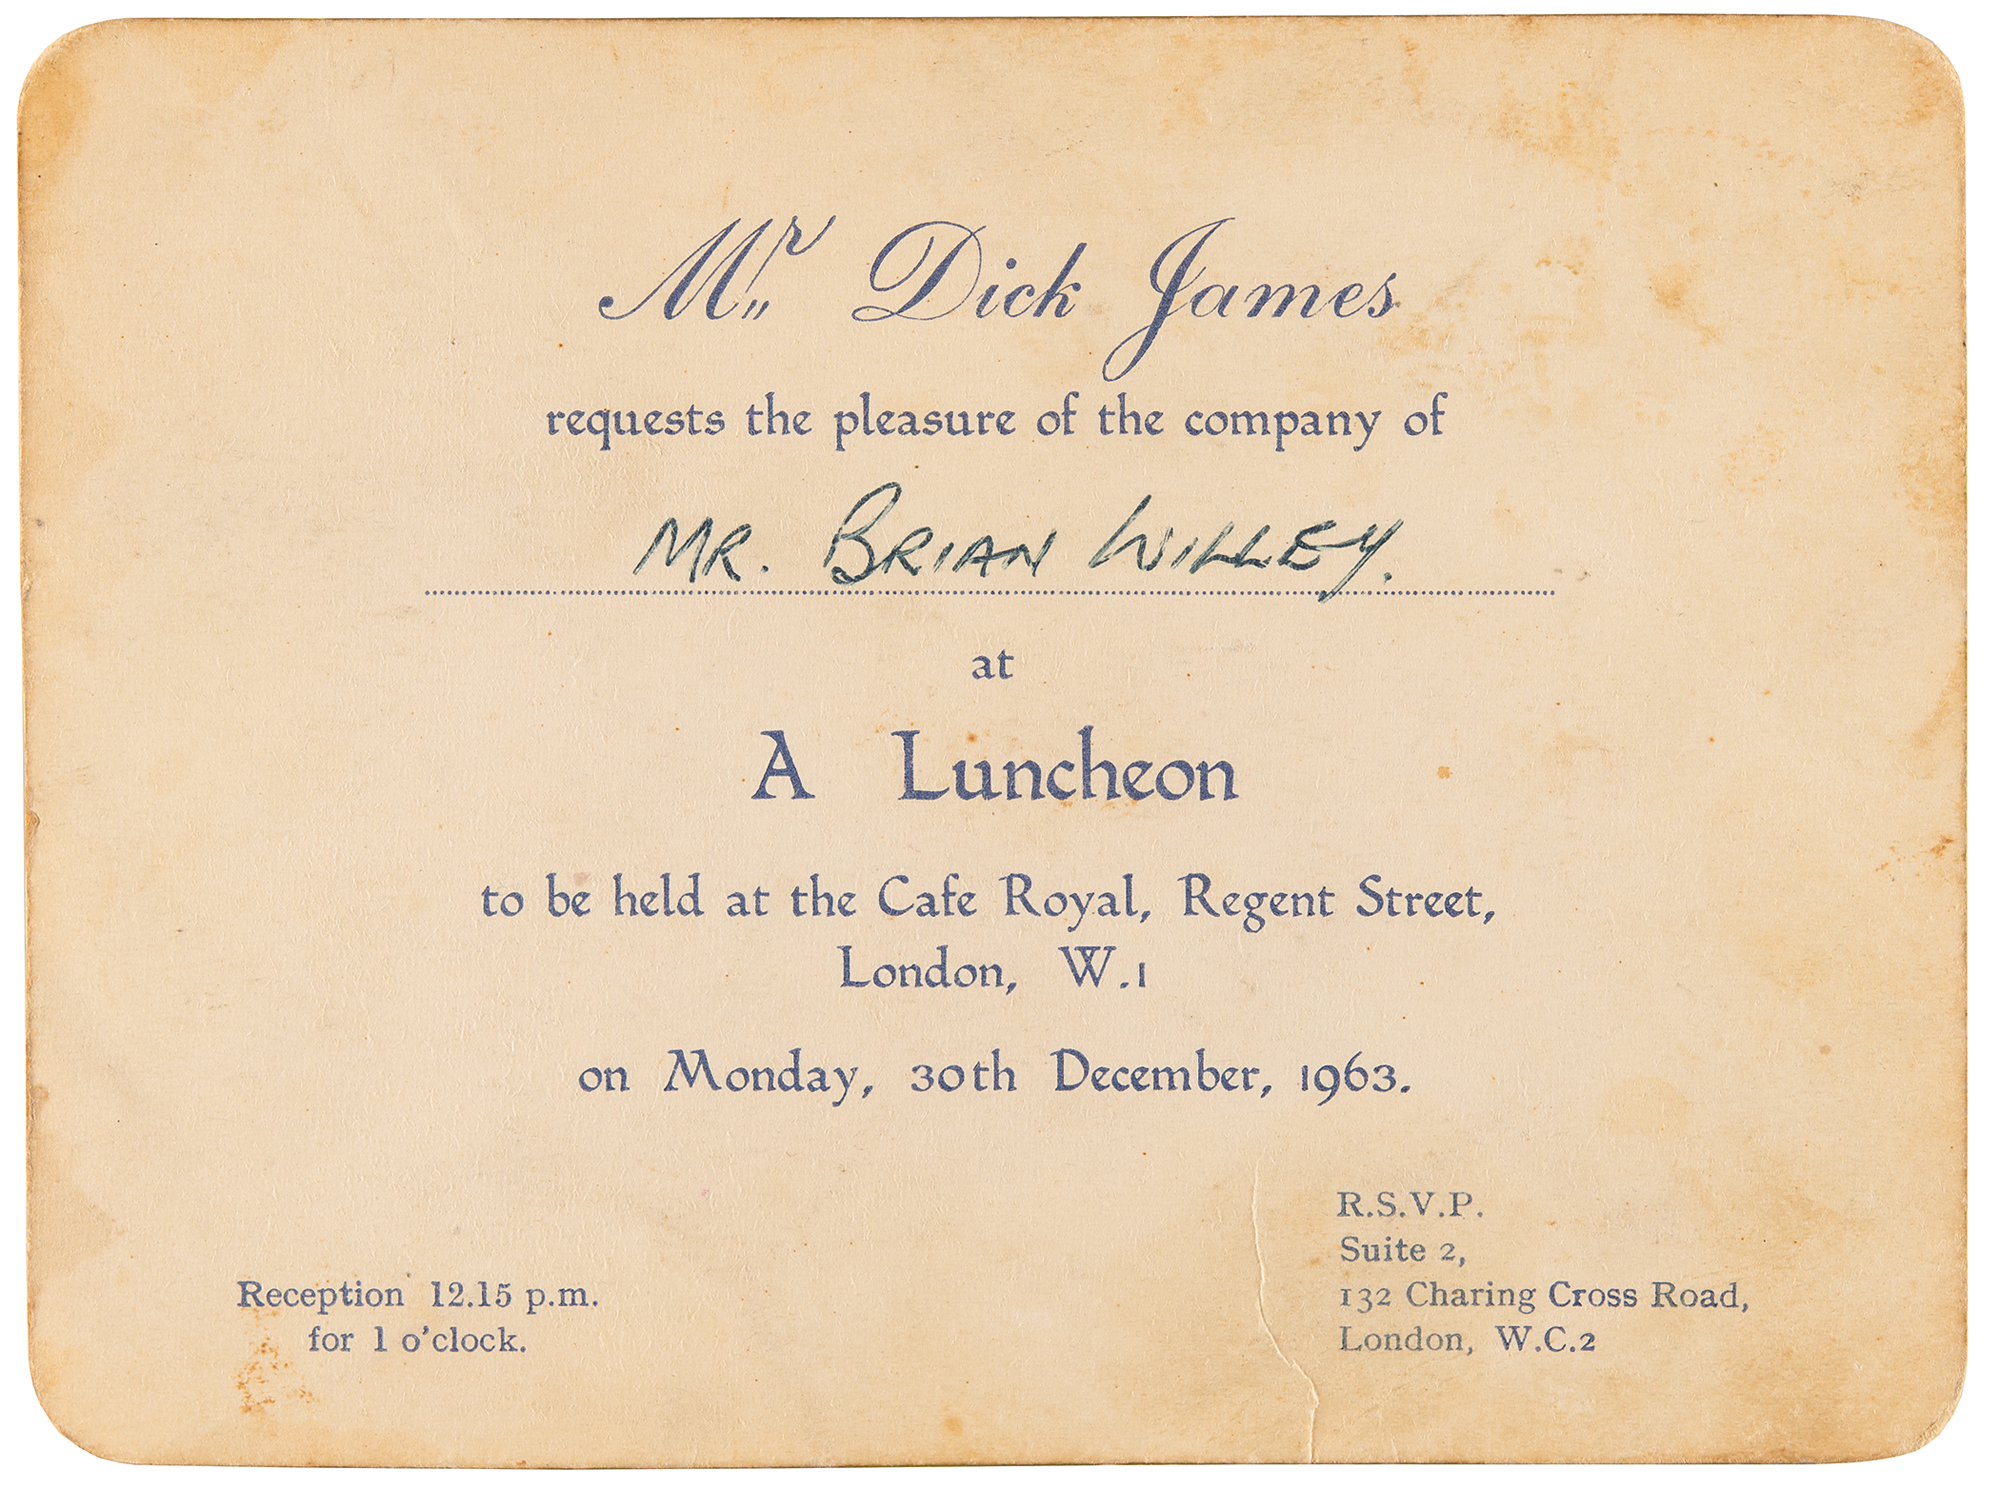 Mr Dick James
requests the pleasure of the company of
MR. BRIAN WILLEY.
at
A Luncheon
to be held at the Cafe Royal, Regent Street,
London, W.1
on Monday, 30th December, 1963.
Reception 12.15 p.m.
for 1 o'clock.
R.S.V.P.
Suite 2,
132 Charing Cross Road,
London, W.C.2